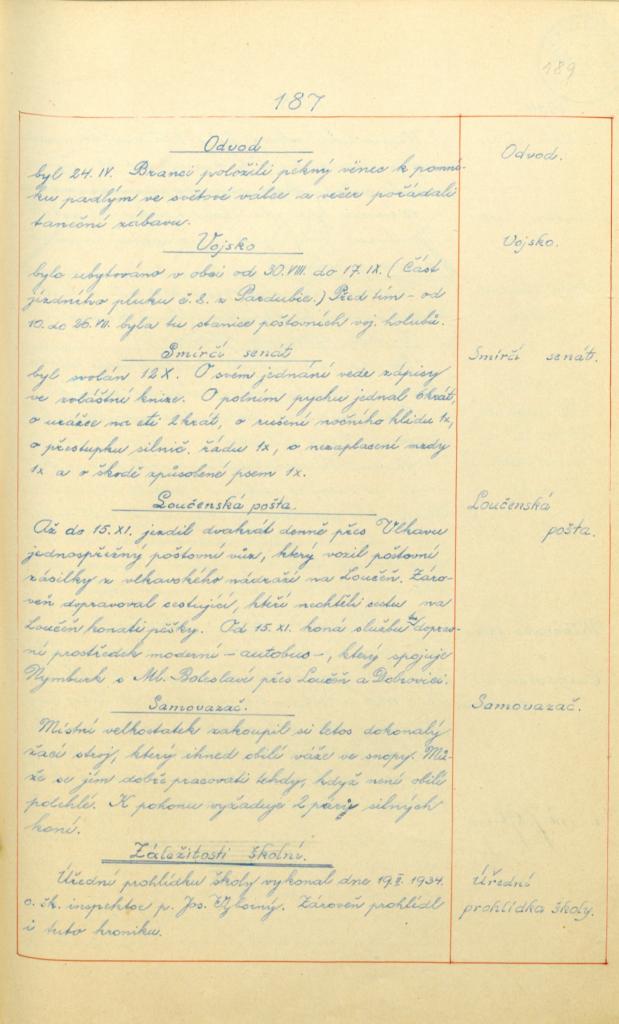 189
187
Odvod
Odvod.
byl 24. IV. Branci položili pěkný věnec k pomní-
ku padlým ve světové válce a večer pořádali
taneční zábavu.
Vojsko
Vojsko.
bylo ubytováno v obci od 30. VIII. do 17. IX. (Část
jízdního pluku č. 8. z Pardubic.) Před tím - od
10. do 26. VII. byla tu stanice poštovních voj. holubů.
Smírčí senát
Smírčí senát.
byl svolán 12 X. O svém jednání vede zápisy
ve zvláštní knize. O polním pychu jednal 6 krát,
o urážce na cti 2 krát, o rušení nočního klidu 1x,
o přestupku silnič. řádu 1x, o nezaplacení mzdy
1x a o škodě způsobené psem 1x.
Loučenská pošta.
Loučenská
pošta.
Až do 15. XI. jezdil dvakrát denně přes Vlkavu
jednospřežný poštovní vůz, který vozil poštovní
zásilky z vlkavského nádraží na Loučeň. Záro-
veň dopravoval cestující, kteří nechtěli cestu na
Loučeň konati pěšky. Od 15. XI. koná službu tu doprav-
ní prostředek moderní - autobus -, který spojuje
Nymburk s Ml. Boleslaví přes Loučeň a Dobrovici.
Samovazač.
Samovazač.
Místní velkostatek zakoupil si letos dokonalý
žací stroj, který ihned obilí váže ve snopy. Mů-
že se jím dobře pracovati tehdy, když není obilí
polehlé. K pohonu vyžaduje 2 páry silných
koní.
Záležitosti školní.
Úřední prohlídku školy vykonal dne 1934.
Úřední
prohlídka školy.
o. šk. inspektor p. Jos. Zároveň prohlédl
i tuto kroniku.